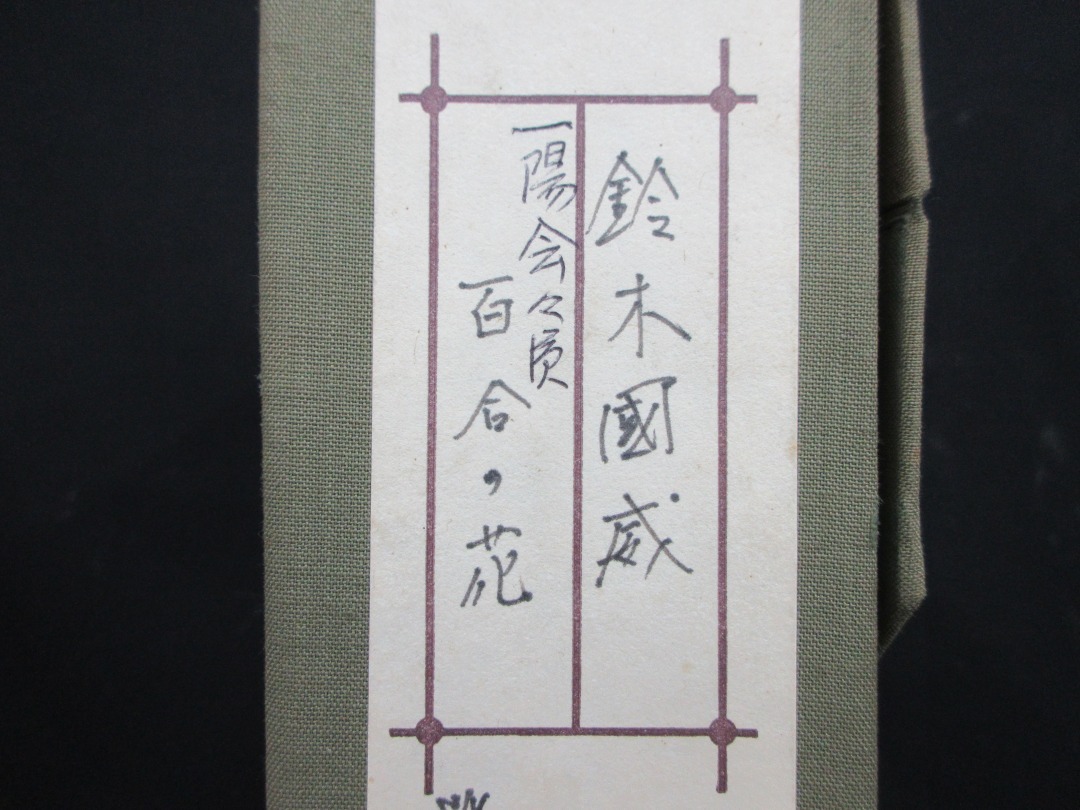 鈴木國威
一陽会々員
百合の花